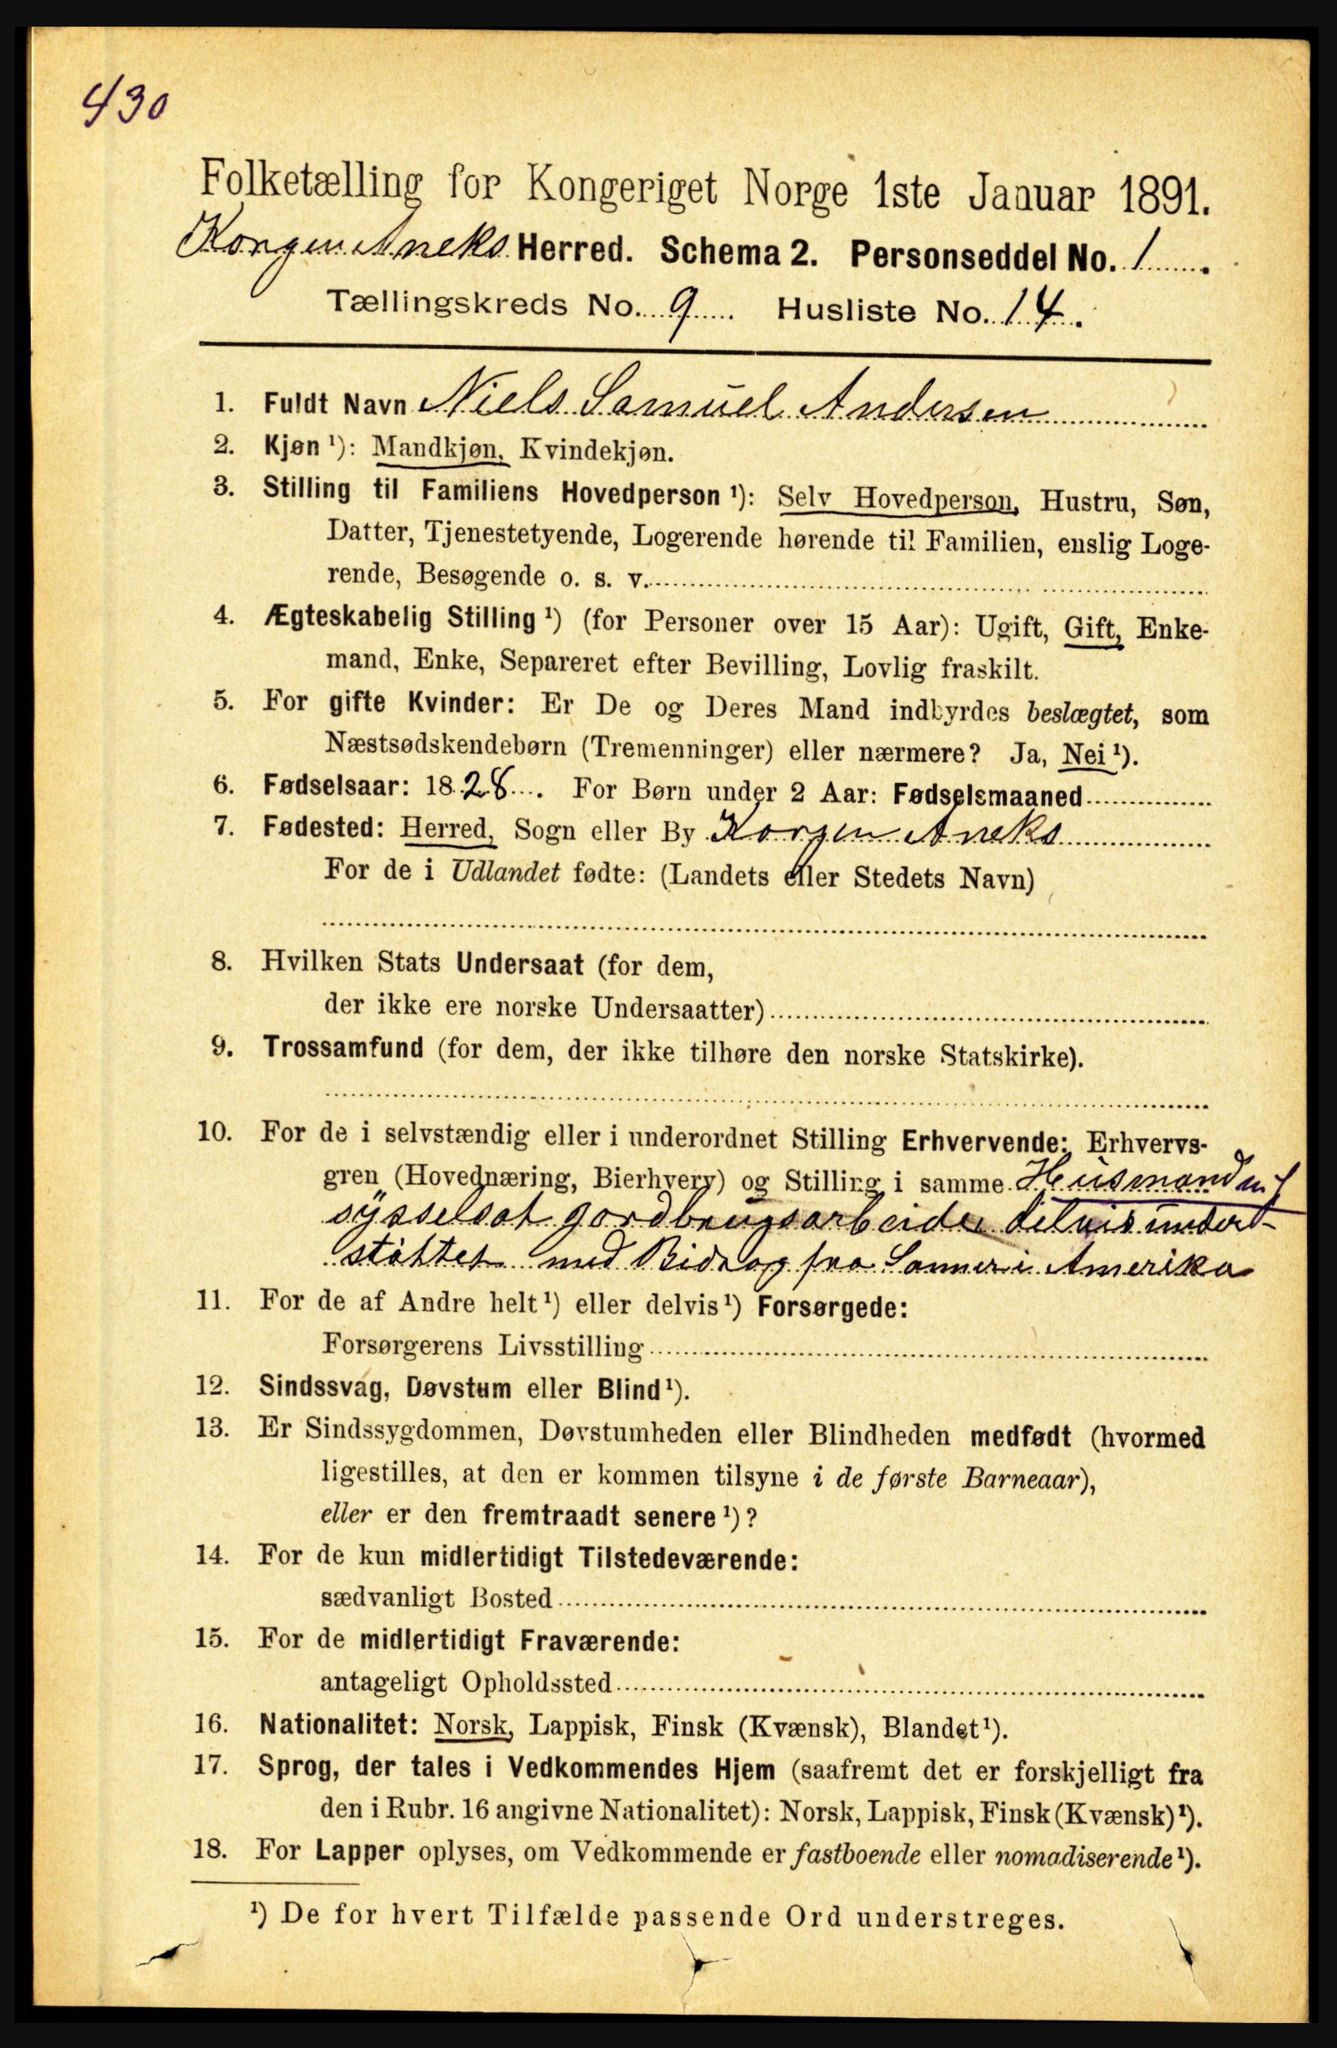 430
Folketælling for Kongeriget Norge 1ste Januar 1891.
Korgen Aneks Herred. Schema 2. Personseddel No. 1.
Tællingskreds No. 9. Husliste No. 14.
1. Fuldt Navn Niels Samuel Andersen
2. Kjøn ¹): Mandkjøn, Kvindekjøn.
3. Stilling til Familiens Hovedperson ¹): Selv Hovedperson, Hustru, Søn,
Datter, Tjenestetyende, Logerende hørende til Familien, enslig Loge-
rende, Besøgende o. s. v.
4. Ægteskabelig Stilling ¹) (for Personer over 15 Aar): Ugift, Gift, Enke-
mand, Enke, Separeret efter Bevilling, Lovlig fraskilt.
5. For gifte Kvinder: Er De og Deres Mand indbyrdes beslægtet, som
Næstsødskendebørn (Tremenninger) eller nærmere? Ja, Nei ¹).
6. Fødselsaar: 1828. For Børn under 2 Aar: Fødselsmaaned
7. Fødested: Herred, Sogn eller By Korgen Aneks
For de i Udlandet fødte: (Landets eller Stedets Navn)
8. Hvilken Stats Undersaat (for dem,
der ikke ere norske Undersaatter)
9. Trossamfund (for dem, der ikke tilhøre den norske Statskirke).
10. For de i selvstændig eller i underordnet Stilling Erhvervende: Erhvervs-
gren (Hovednæring, Bierhverv) og Stilling i samme Husmand m J
sysselsat gardbrugsarbeide, delvis under-
støttet med Bidrag fra Sønner i Amerika
11. For de af Andre helt ¹) eller delvis ¹) Forsørgede:
Forsørgerens Livsstilling
12. Sindssvag, Døvstum eller Blind ¹).
13. Er Sindssygdommen, Døvstumheden eller Blindheden medfødt (hvormed
ligestilles, at den er kommen tilsyne i de første Barneaar),
eller er den fremtraadt senere ¹)?
14. For de kun midlertidigt Tilstedeværende:
sædvanligt Bosted
15. For de midlertidigt Fraværende:
antageligt Opholdssted
16. Nationalitet: Norsk, Lappisk, Finsk (Kvænsk), Blandet ¹).
17. Sprog, der tales i Vedkommendes Hjem (saafremt det er forskjelligt fra
den i Rubr. 16 angivne Nationalitet): Norsk, Lappisk, Finsk (Kvænsk) ¹).
18. For Lapper oplyses, om Vedkommende er fastboende eller nomadiserende ¹).
¹) De for hvert Tilfælde passende Ord understreges.